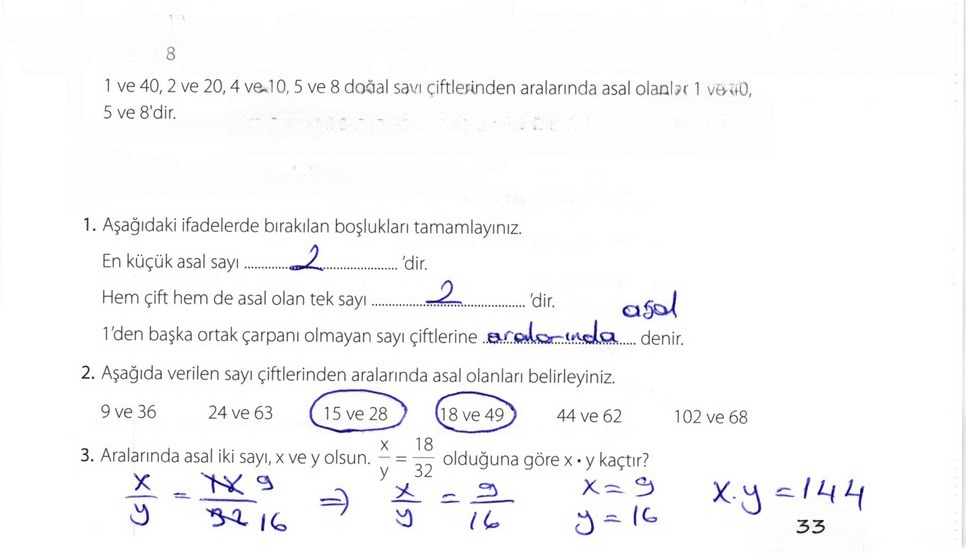 8
1 ve 40, 2 ve 20, 4 ve 10, 5 ve 8 doğal sayı çiftlerinden aralarında asal olanlar 1 ve 40,
5 ve 8'dir.
1. Aşağıdaki ifadelerde bırakılan boşlukları tamamlayınız.
En küçük asal sayı ........2........ 'dir.
Hem çift hem de asal olan tek sayı ........2........ 'dir.
asal
1'den başka ortak çarpanı olmayan sayı çiftlerine aralarında..... denir.
2. Aşağıda verilen sayı çiftlerinden aralarında asal olanları belirleyiniz.
9 ve 36 24 ve 63 15 ve 28 18 ve 49 44 ve 62 102 ve 68
3. Aralarında asal iki sayı, x ve y olsun. x/y = 18/32 olduğuna göre x • y kaçtır?
x/y = 18 9/32 16 ⇒ x/y = 9/16 x = 9 y = 16 x.y = 144
33